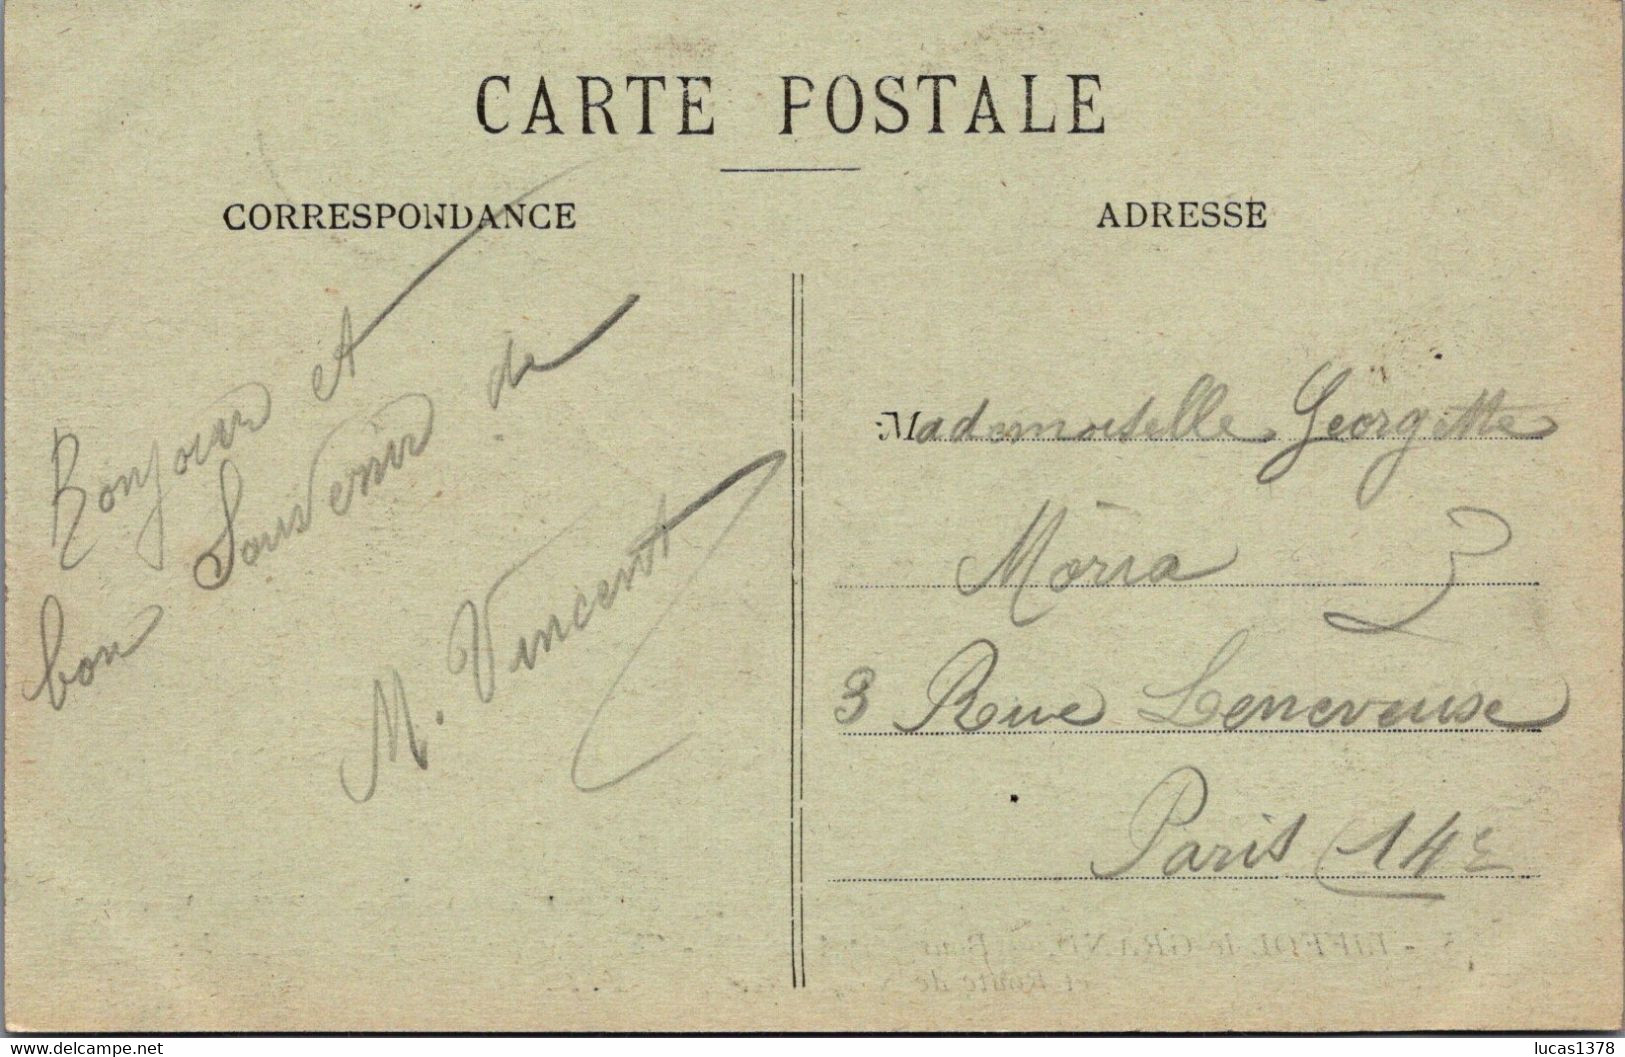 CARTE POSTALE
CORRESPONDANCE
ADRESSE
Bonjour et
bon Souvenir de
M. Vincent
Mademoiselle Georgette
Moria
3 Rue Leneveuse
Paris 14e
LIFFOL le GRAND
et Route de
www.delcampe.net
lucas1378